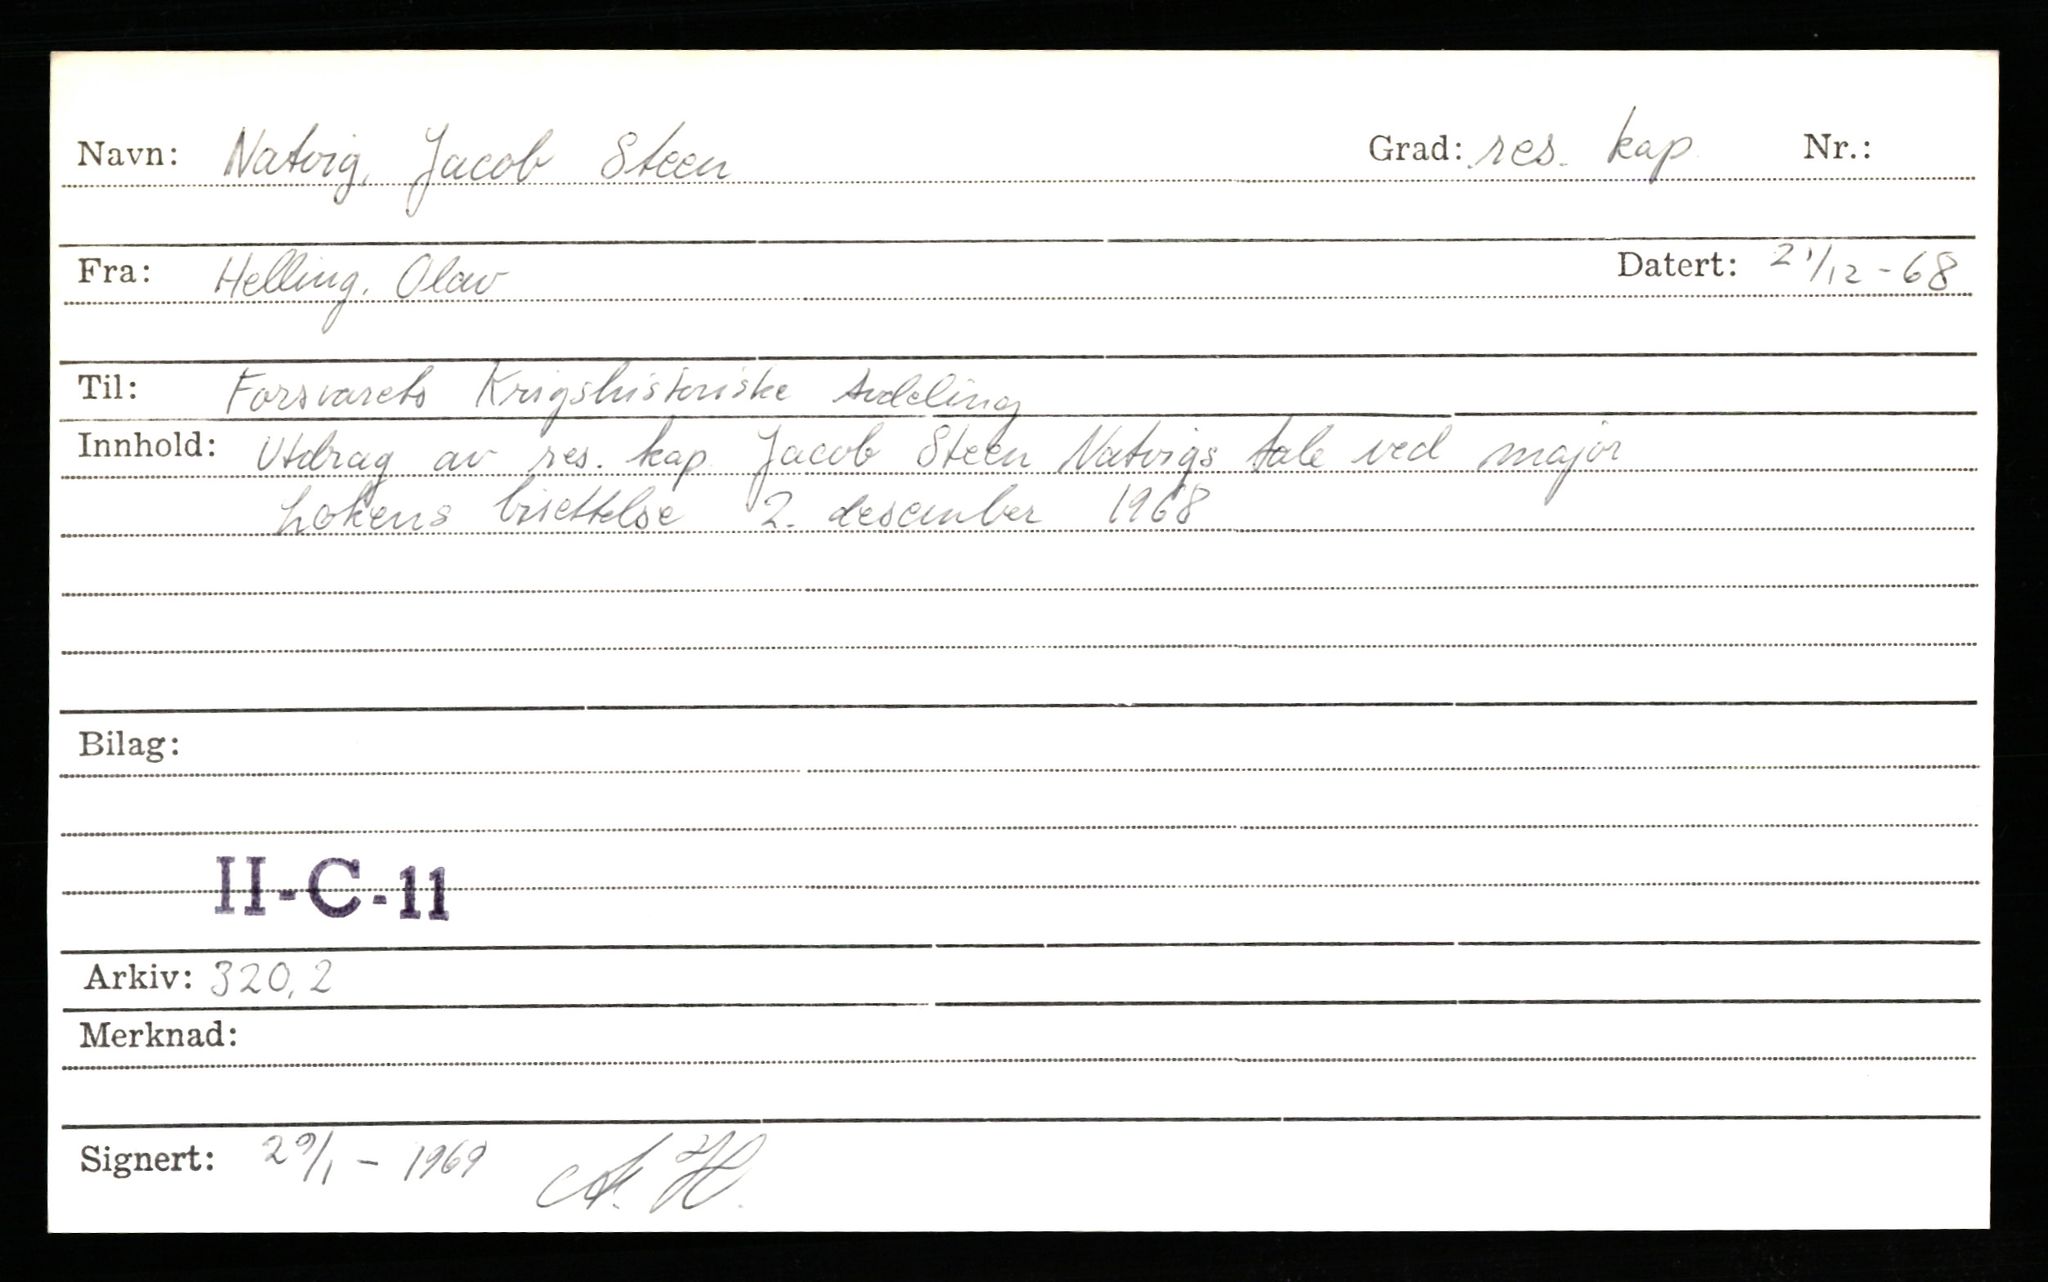 Navn: Natvig, Jacob Steen Grad: res. kap. Nr.:
Fra: Helling, Olav Datert: 21/12-68
Til: Forsvarets Krigshistoriske Avdeling
Innhold: Utdrag av res. kap. Jacob Steen Natvigs tale ved major
Løkens bisettelse 2. desember 1968
Bilag:
II-C-11
Arkiv: 320,2
Merknad:
Signert: 29/1 - 1969 A. H.